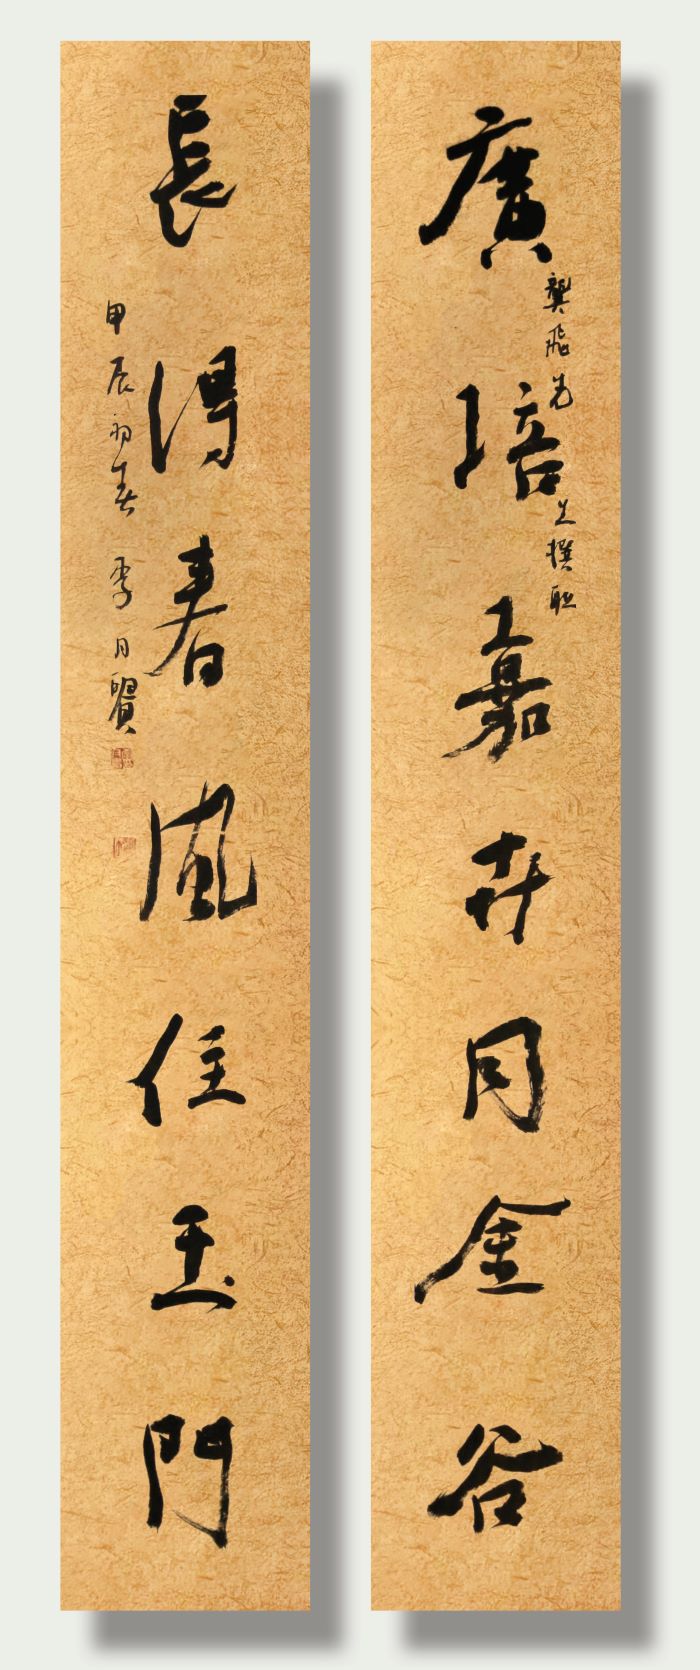 廣培嘉卉同金谷
龔飛先生撰联
長得春風住玉門
甲辰初春 李月賢